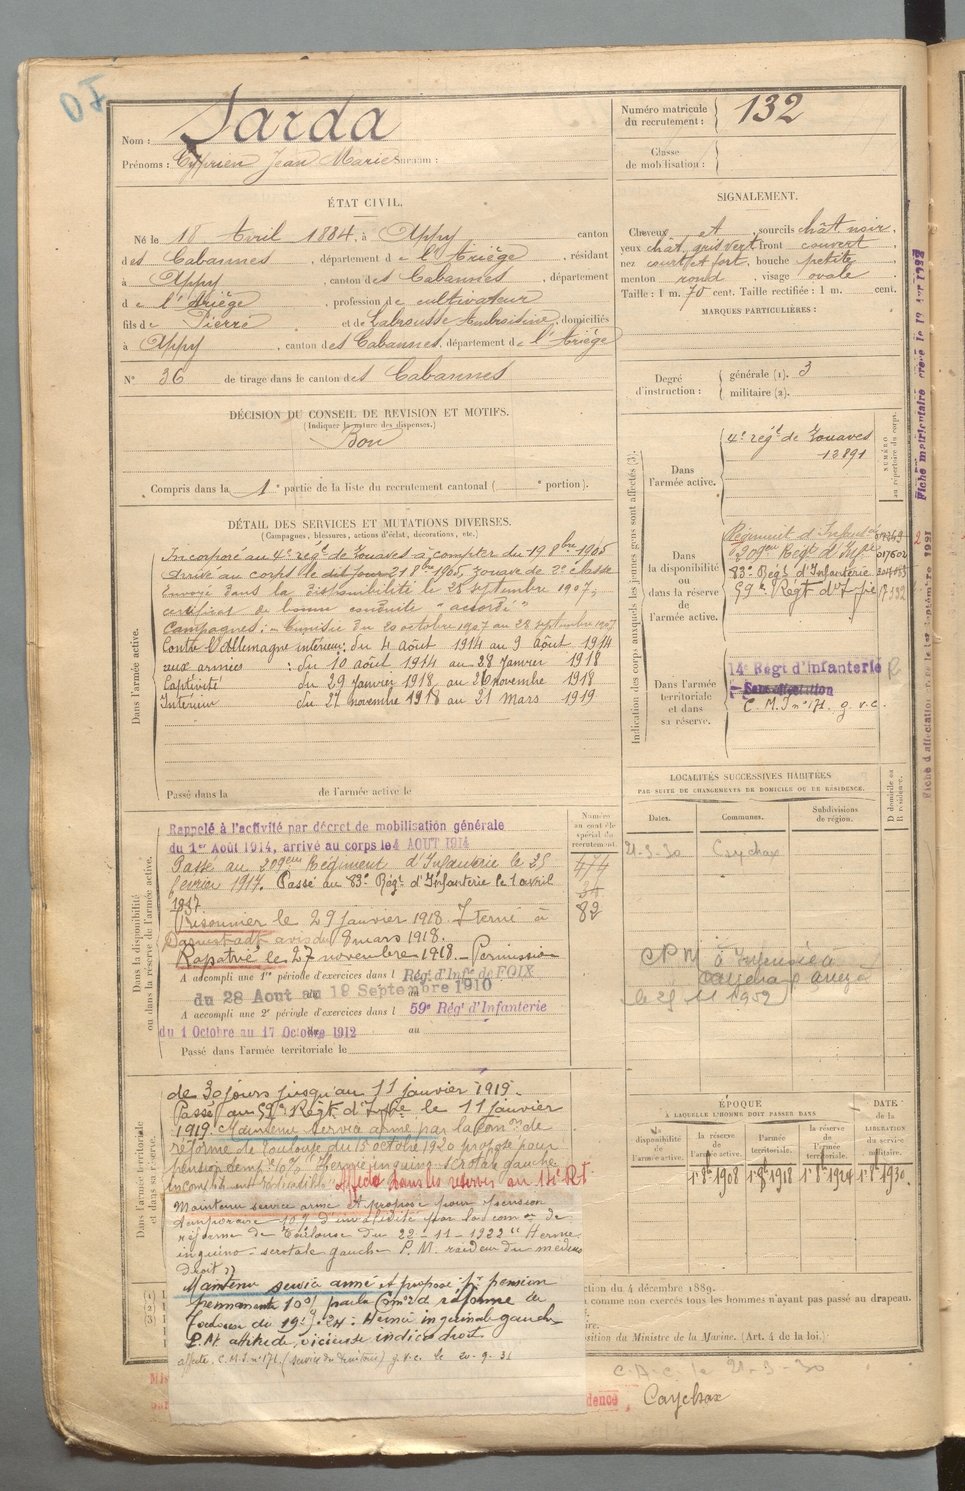 Nom : Sarda
Prénoms : Cyprien Jean Marie Surnom :
Numéro matricule du recrutement : 132
Classe de mobilisation :
ÉTAT CIVIL.
Né le 18 Avril 1884, à Appy canton
des Cabannes, département de l'Ariège, résidant
à Appy, canton des Cabannes, département
de l'Ariège, profession de cultivateur
fils de Pierre et de Labrousse Ambroisine, domiciliés
à Appy, canton des Cabannes, département de l'Ariège
N° 36 de tirage dans le canton des Cabannes
SIGNALEMENT.
Cheveux et sourcils chât noir,
yeux chât, gris vert front couvert
nez court et fort, bouche petite
menton rond, visage ovale
Taille : 1 m. 70 cent. Taille rectifiée : 1 m. cent.
MARQUES PARTICULIÈRES :
Degré d'instruction : générale (1). 3
militaire (2).
DÉCISION DU CONSEIL DE REVISION ET MOTIFS.
(Indiquer la nature des dispenses.)
Bon
Compris dans la 1e partie de la liste du recrutement cantonal ( e portion).
DÉTAIL DES SERVICES ET MUTATIONS DIVERSES.
(Campagnes, blessures, actions d'éclat, décorations, etc.)
Dans l'armée active.
Incorporé au 4e régt de Zouaves à compter du 1 9bre 1905
Arrivé au corps le dit jour 21 8bre 1905, zouave de 2e classe
Envoyé dans la disponibilité le 28 septembre 1907,
certificat de bonne conduite "accordé"
Campagnes : Tunisie du 20 octobre 1907 au 28 septembre 1907
Contre l'Allemagne intérieur : du 4 août 1914 au 9 août 1914
aux armées : du 10 août 1914 au 28 Janvier 1918
Captivité du 29 Janvier 1918 au 26 novembre 1918
Intérieur du 27 novembre 1918 au 21 Mars 1919
Passé dans la de l'armée active le
Indication des corps auxquels les jeunes gens sont affectés (3).
NUMÉRO au répertoire du corps.
Dans l'armée active.
4e régt de Zouaves
13891
Dans la disponibilité ou dans la réserve de l'armée active.
Régiment d'Infanterie
209eme Régt d'Inftie
83e Régt d'Infanterie
59e Régt d'Inftie
Dans l'armée territoriale et dans sa réserve.
14e Régt d'Infanterie
Sans affectation
C. M. I n° 171. g. v. c.
Fiche matriculaire créée le 19 Avr 1932
LOCALITÉS SUCCESSIVES HABITÉES
PAR SUITE DE CHANGEMENTS DE DOMICILE OU DE RÉSIDENCE.
D domicile ou R résidence.
Dates. Communes. Subdivisions de région.
21-3-30 Caychax
le 25 11 1952
Dans la disponibilité ou dans la réserve de l'armée active.
Numéro au contrôle spécial du recrutement.
474
34
82
Rappelé à l'activité par décret de mobilisation générale
du 1er Août 1914, arrivé au corps le 4 AOUT 1914
Passé au 209eme Régiment d'Infanterie le 25
fevrier 1917. Passé au 83e Régt d'Infanterie le 1 avril
1917
Prisonnier le 29 Janvier 1918. Interné à
Darmstadt avis du 8 mars 1918.
Rapatrié le 27 novembre 1918. Permission
A accompli une 1re période d'exercices dans l Régt d'Infie de FOIX
du 28 Aout au 19 Septembre 1910
A accompli une 2e période d'exercices dans l 59e Régt d'Infanterie
du 1 Octobre au 17 Octobre 1912 au
Passé dans l'armée territoriale le
Dans l'armée territoriale et dans sa réserve.
de 30 jours jusqu'au 11 janvier 1919.
Passé au 59e Régt d'Inftie le 11 janvier
1919. Maintenu service armé par la Comon de
réforme de Toulouse du 15 octobre 1920 proposé pour
pension temp. 10% "Hernie inguino scrotale gauche
Affecté dans les réserves au 14e R.I.
Maintenu service armé et proposé pour pension
temporaire 10% d'invalidité par la comon de
réforme de Toulouse du 22-11-1922 "Hernie
inguino-scrotale gauche P. M. raideur du medius
droit"
Maintenu service armé et proposé pr pension
permanente 10% par la Comon de réforme de
Toulouse du 24 : Hernie inguinale gauche
P. M. attitude vicieuse index droit
affecté C.M.I n° 171 (service du territoire) g. v. c. le 20-9-31
ÉPOQUE
À LAQUELLE L'HOMME DOIT PASSER DANS
la disponibilité de l'armée active.
la réserve de l'armée active.
l'armée territoriale.
la réserve de l'armée territoriale.
DATE de la LIBÉRATION du service militaire.
1r 8bre 1908 1r 8bre 1918 1r 8bre 1924 1r 8bre 1930.
ction du 4 décembre 1889.
comme non exercés tous les hommes n'ayant pas passé au drapeau.
ire.
sition du Ministre de la Marine. (Art. 4 de la loi.)
C.A.C. le 21-3-30
dence,
Caychax